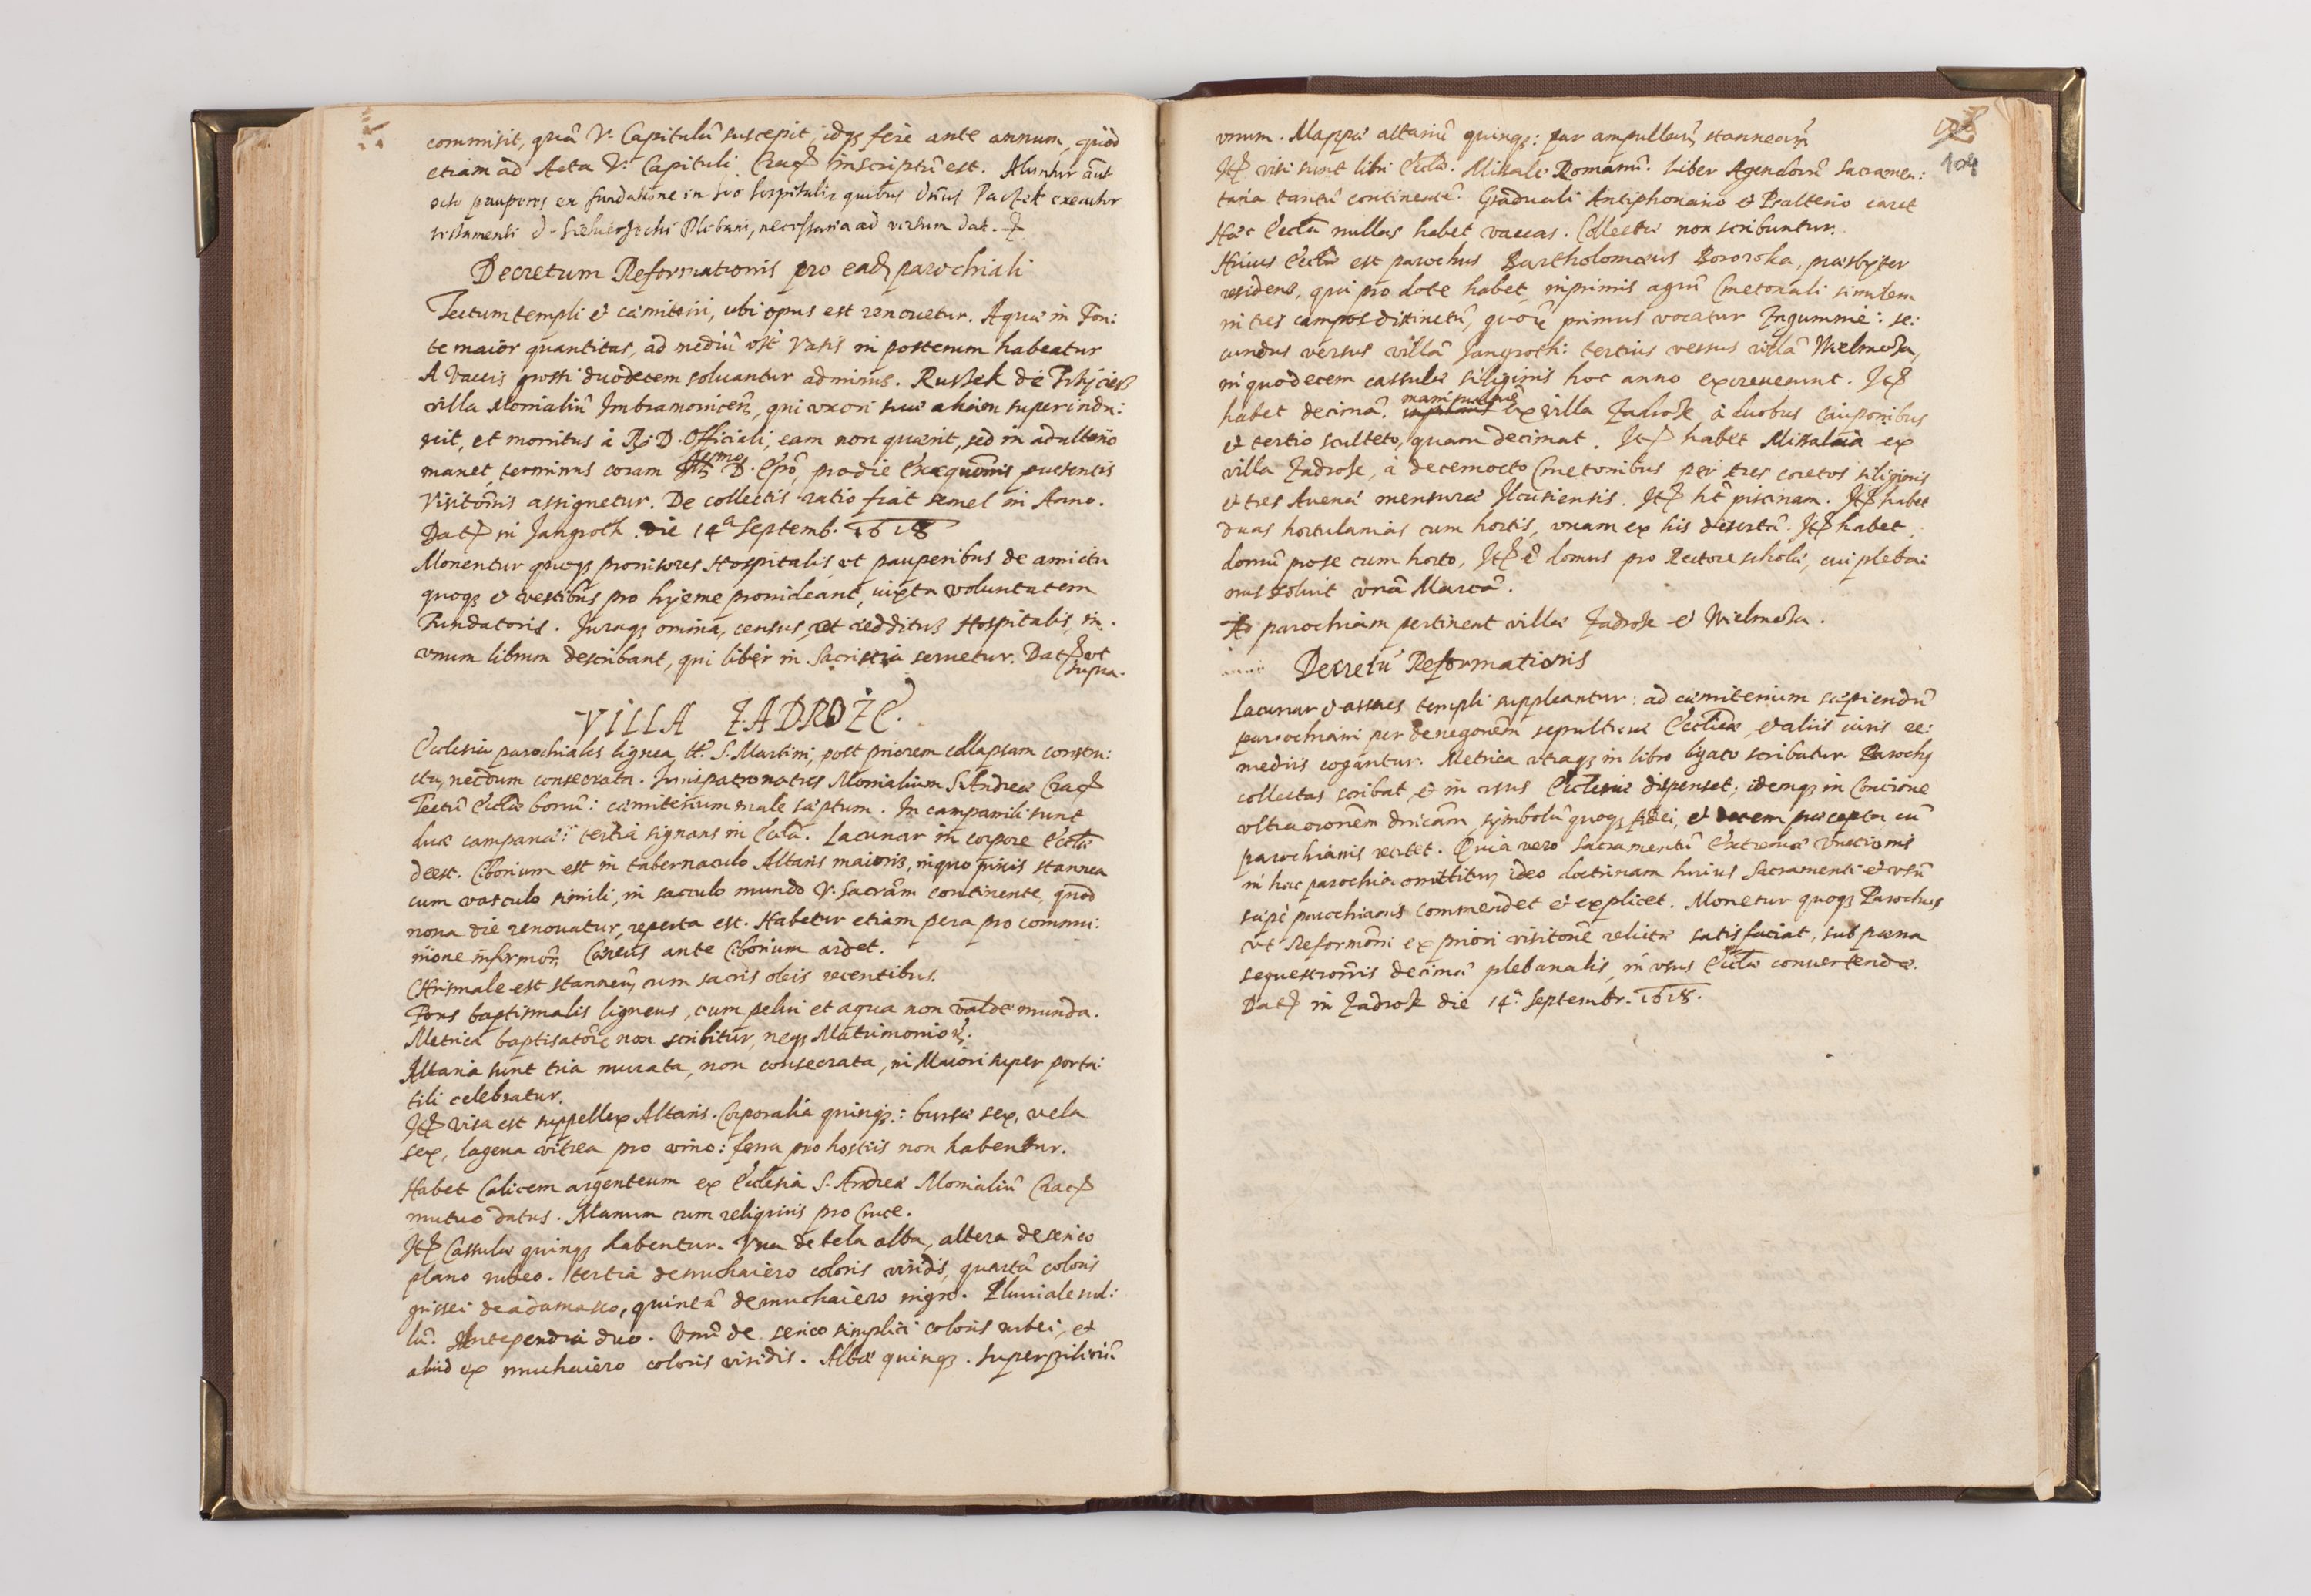 commisit, quã V. Capitulũ suscepit, idq; fere ante annum, quod
etiam ad Acta V. Capituli Crac inscriptũ est. Aluntur aũt
octo pauperes ex fundatione in hospitali, quibus Dñus executor
testamenti Plebani, necessaria ad victum dat.
Decretum Reformationis pro ead parochiali
Tectum templi et cæmiterii, ubi opus est renouetur. Aquæ in Fon:
te maior quantitas, ad mediũ vasis in posterum habeatur
A Vaccis grossi duodecem soluantur ad minus. Russek de
villa Monialiũ Imbramouicen, qui uxori suæ aliam superindu:
xit, et monitus à R. D. Officiali, eam non quærit, sed in adulterio
manet, terminus coram D. Epõ, pro die Exequõnis præsentis
Visitõnis assignetur. De collectis ratio fiat semel in Anno.
Dat in Jangroth die 14 Septemb. 1618
Monentur quoq; prouisores Hospitalis, vt pauperibus de amictu
quoq; et vestibus pro hyeme prouideant, iuxta voluntatem
Fundatoris. Juraq; omnia, census, et redditus Hospitalis, in
vnum librum describant, qui liber in Sacristia seruetur. Dat vt
supra.
VILLA ZADROŻE.
Ecclesia parochialis lignea tt. S. Martini, post priorem collapsam constru:
cta, necdum consecrata. Juris patronatus Monialium S. Andreæ Crac
Tectũ Eccłæ bonũ: cæmiterium male sæptum. In campanili sunt
duæ campanæ: tertia signans in Eccła. Lacunar in corpore Eccłæ
deest. Ciborium est in tabernaculo Altaris maioris, in quo pixis stannea
cum vasculo simili, in sacculo mundo V. Sacrãm continente, quod
nona die renouatur, reperta est. Habetur etiam pera pro commu:
nione infirmor. Cereus ante Ciborium ardet.
Chrismale est stanneũ, cum sacris oleis recentibus.
Fons baptismalis ligneus, cum pelui et aqua non valde munda.
Metrica baptisator non scribitur, neq; Matrimonior.
Altaria sunt tria murata, non consecrata, in Maiori super porta:
tili celebratur.
It visa est suppellex Altaris. Corporalia quinq;: bursæ sex, vela
sex, lagena vitrea pro vino: ferra pro hostiis non habentur.
Habet Calicem argenteum ex Ecclesia S. Andreæ Monialiũ Crac
mutuo datus. Manum cum reliquiis pro Cruce.
It Cassulæ quinq; habentur. Vna de tela alba, altera de serico
plano rubeo. tertia de muchaiero coloris viridis, quarta coloris
grissei de adamasco, quinta de muchaiero nigro. Pluuiale nul:
lũ. Antependia duo. Vnũ de serico simplici coloris rubei, et
aliud ex muchaiero coloris viridis. Albæ quinq;. Superpiliciũ
104
vnum. Mappæ altariũ quinq;: par ampullarũ stannearũ
It visi sunt libri Eccłæ. Missale Romanũ. Liber Agendorũ Sacramen:
taria tantũ continente. Graduali Antiphonario et Psalterio caret
Hæc Eccła nullas habet vaccas. Collectæ non scribuntur.
Huius Eccłæ est parochus Bartholomæus Bororoka, præsbyter
residens, qui pro dote habet inprimis agrũ Cmetonali similem
in tres campos distinctũ, quorũ primus vocatur Zagumnie: se:
cundus versus villã Jangroth: tertius versus villã Wielmoża,
in quo decem cassulæ siliginis hoc anno excreuerunt. It
habet decimã manipularẽ ex villa Zadroże à duobus cauponibus
et tertio sculteto, quam decimat. It habet Missalia ex
villa Zadroże, à decemocto Cmetonibus per tres coretos siliginis
et tres Auenæ mensuræ Ilcusiensis. It ht piscinam. It habet
duas hortulanias cum hortis, vnam ex his desertã. It habet
domũ pro se cum horto, It et domus pro Rectore scholæ, cui pleba:
nus soluit vnã Marcã.
Ad parochiam pertinent villæ Zadroże et Wielmoża.
Decretũ Reformationis
Lacunar et asseres templi suppleantur: ad cæmiterium sæpiendũ
parochiani per denegõnem sepulturæ Ecclicæ, et aliis iuris re:
mediis cogantur. Metrica vtraq; in libro ligato scribatur. Parochus
collectas scribat, et in vsus Ecclesiæ dispenset; idemq; in Concione
vltra orõnem dnicãm, symbolũ quoq; fidei, et decem præcepta cũ
parochianis recitet. Quia vero Sacramentũ Extremæ Vnctionis
in hac parochia omittitur, ideo doctrinam huius Sacramenti et vsũ
sæpe parochianis commendet et explicet. Monetur quoq; Parochus
vt Reformõni ex priori visitõne relictæ satisfaciat, sub pæna
sequestrõnis decimæ plebanalis, in vsus Eccłæ conuertendæ.
Dat in Zadroże die 14 Septembr. 1618.